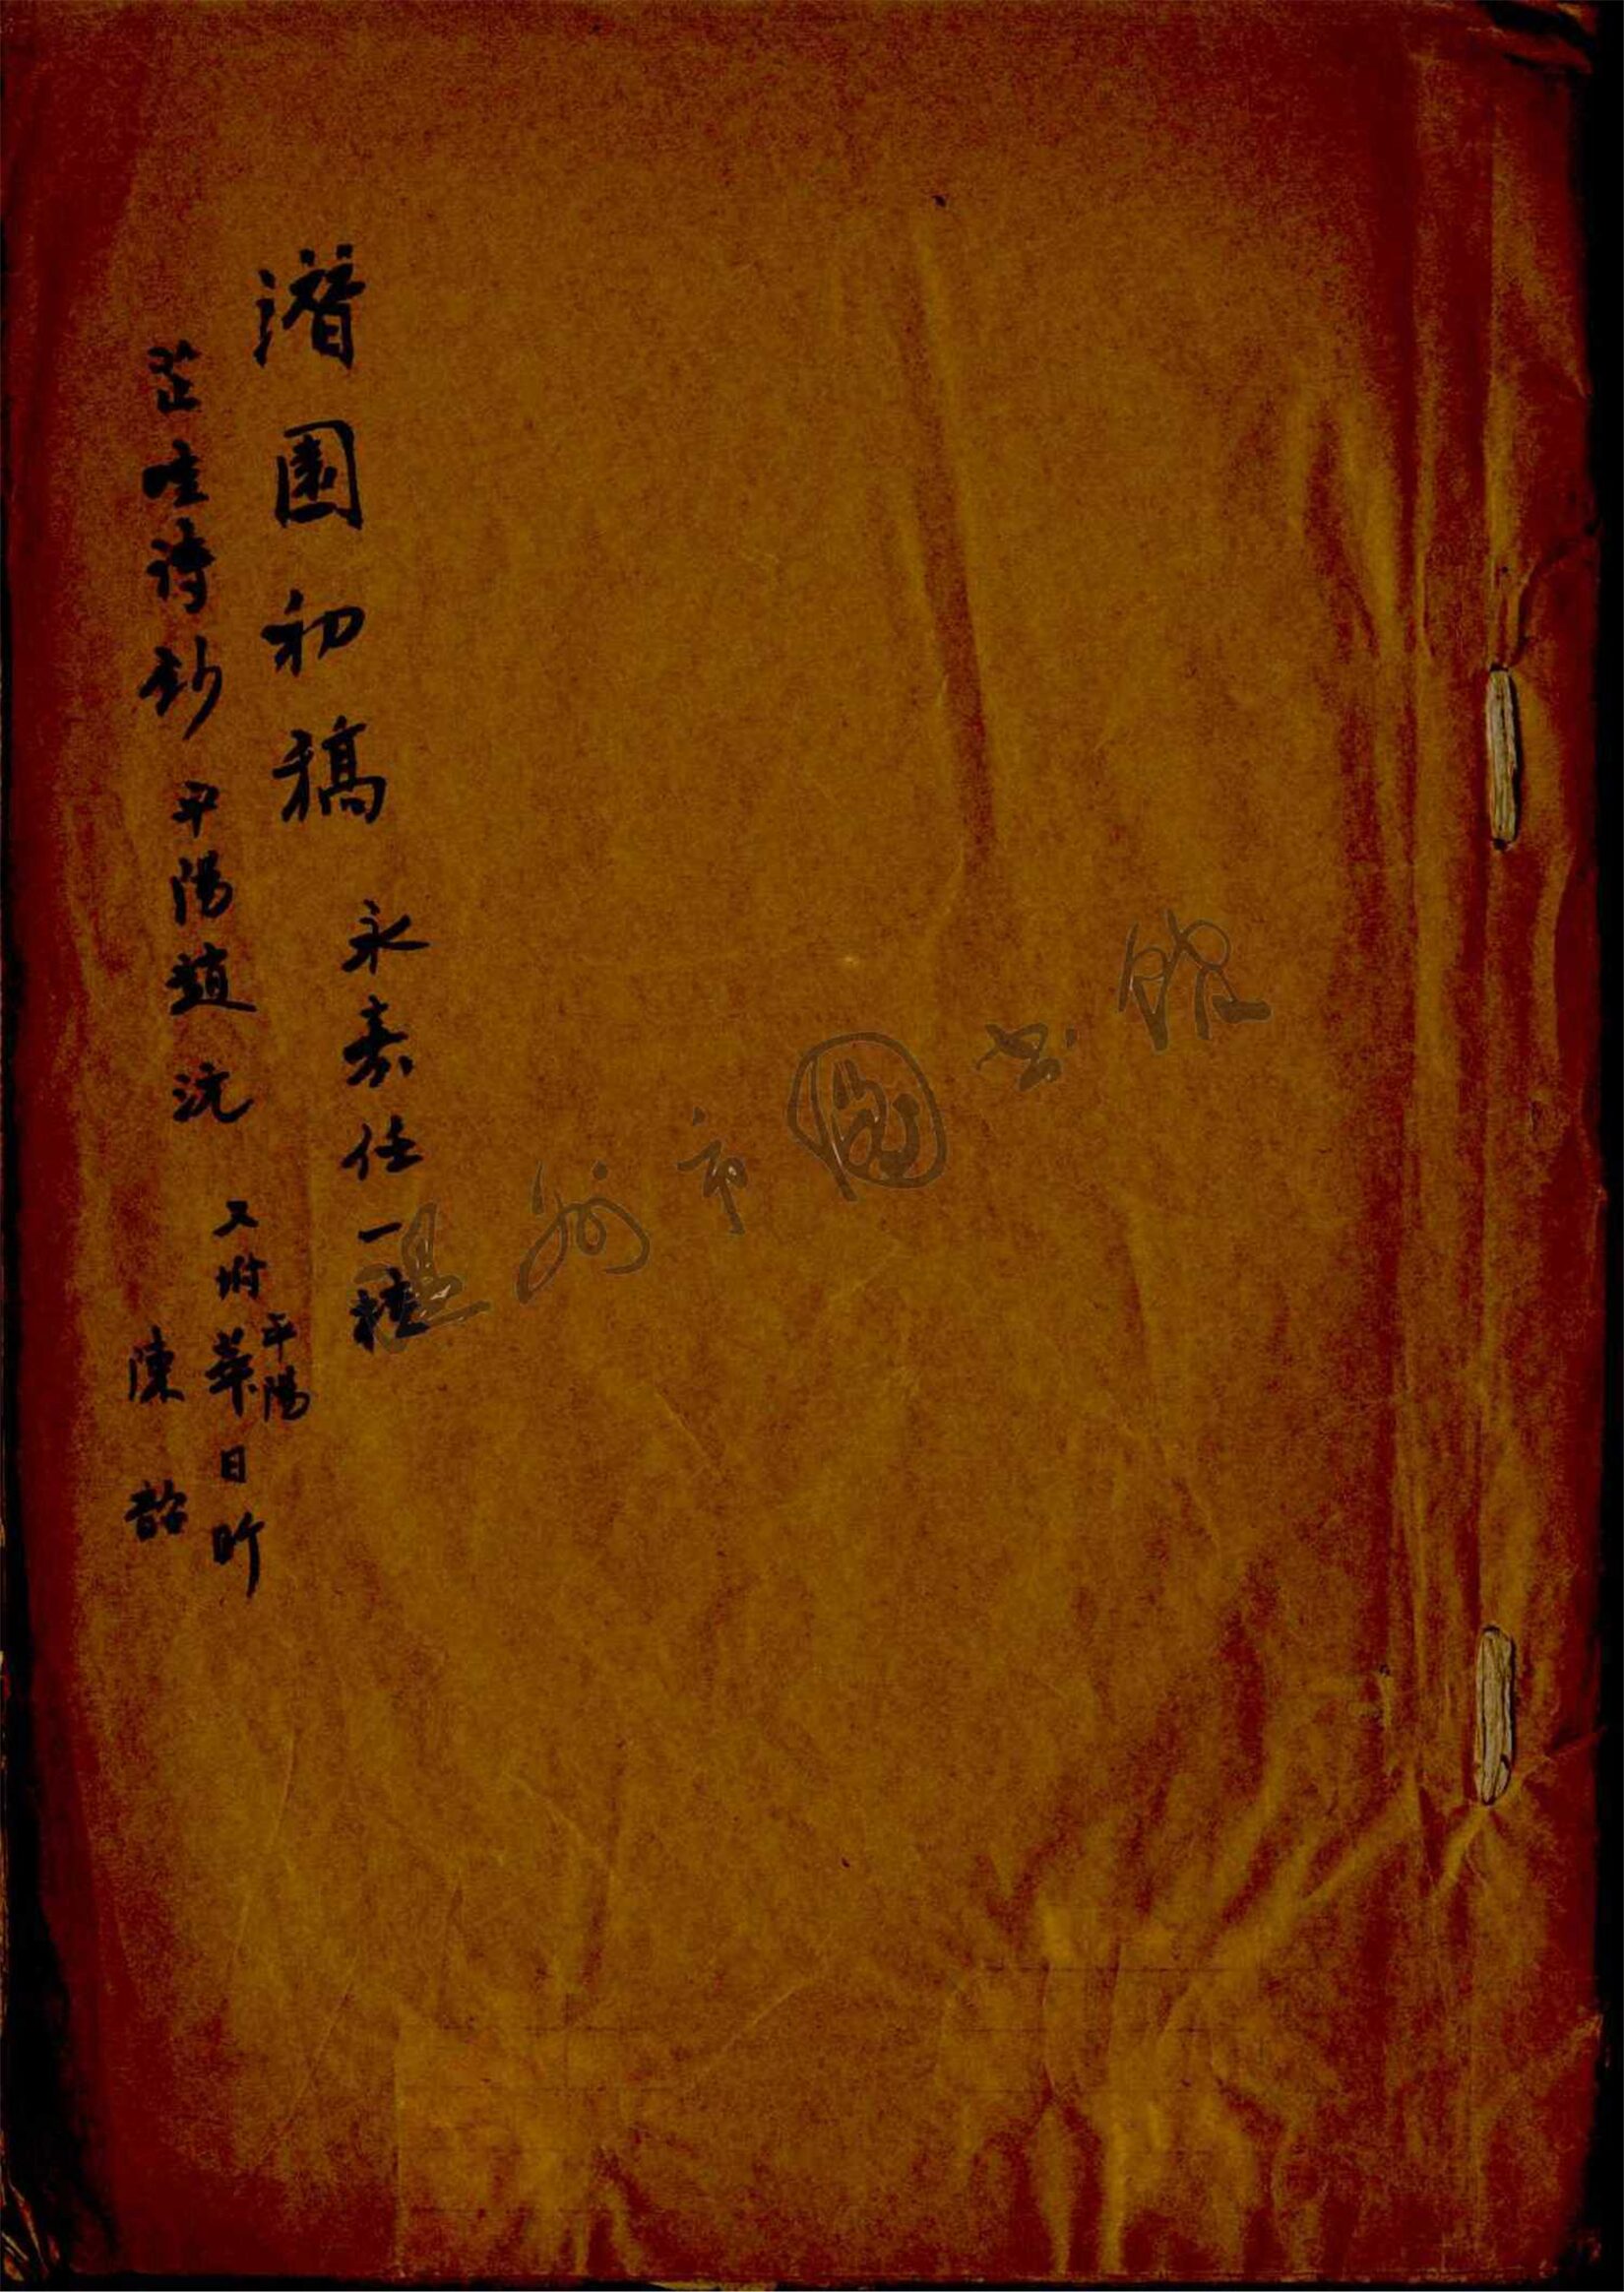 潛園初稿 永嘉任一種
芷㕔詩鈔 平陽趙沅
又附 平陽
葉日昕
陳韶
溫州市圖書館